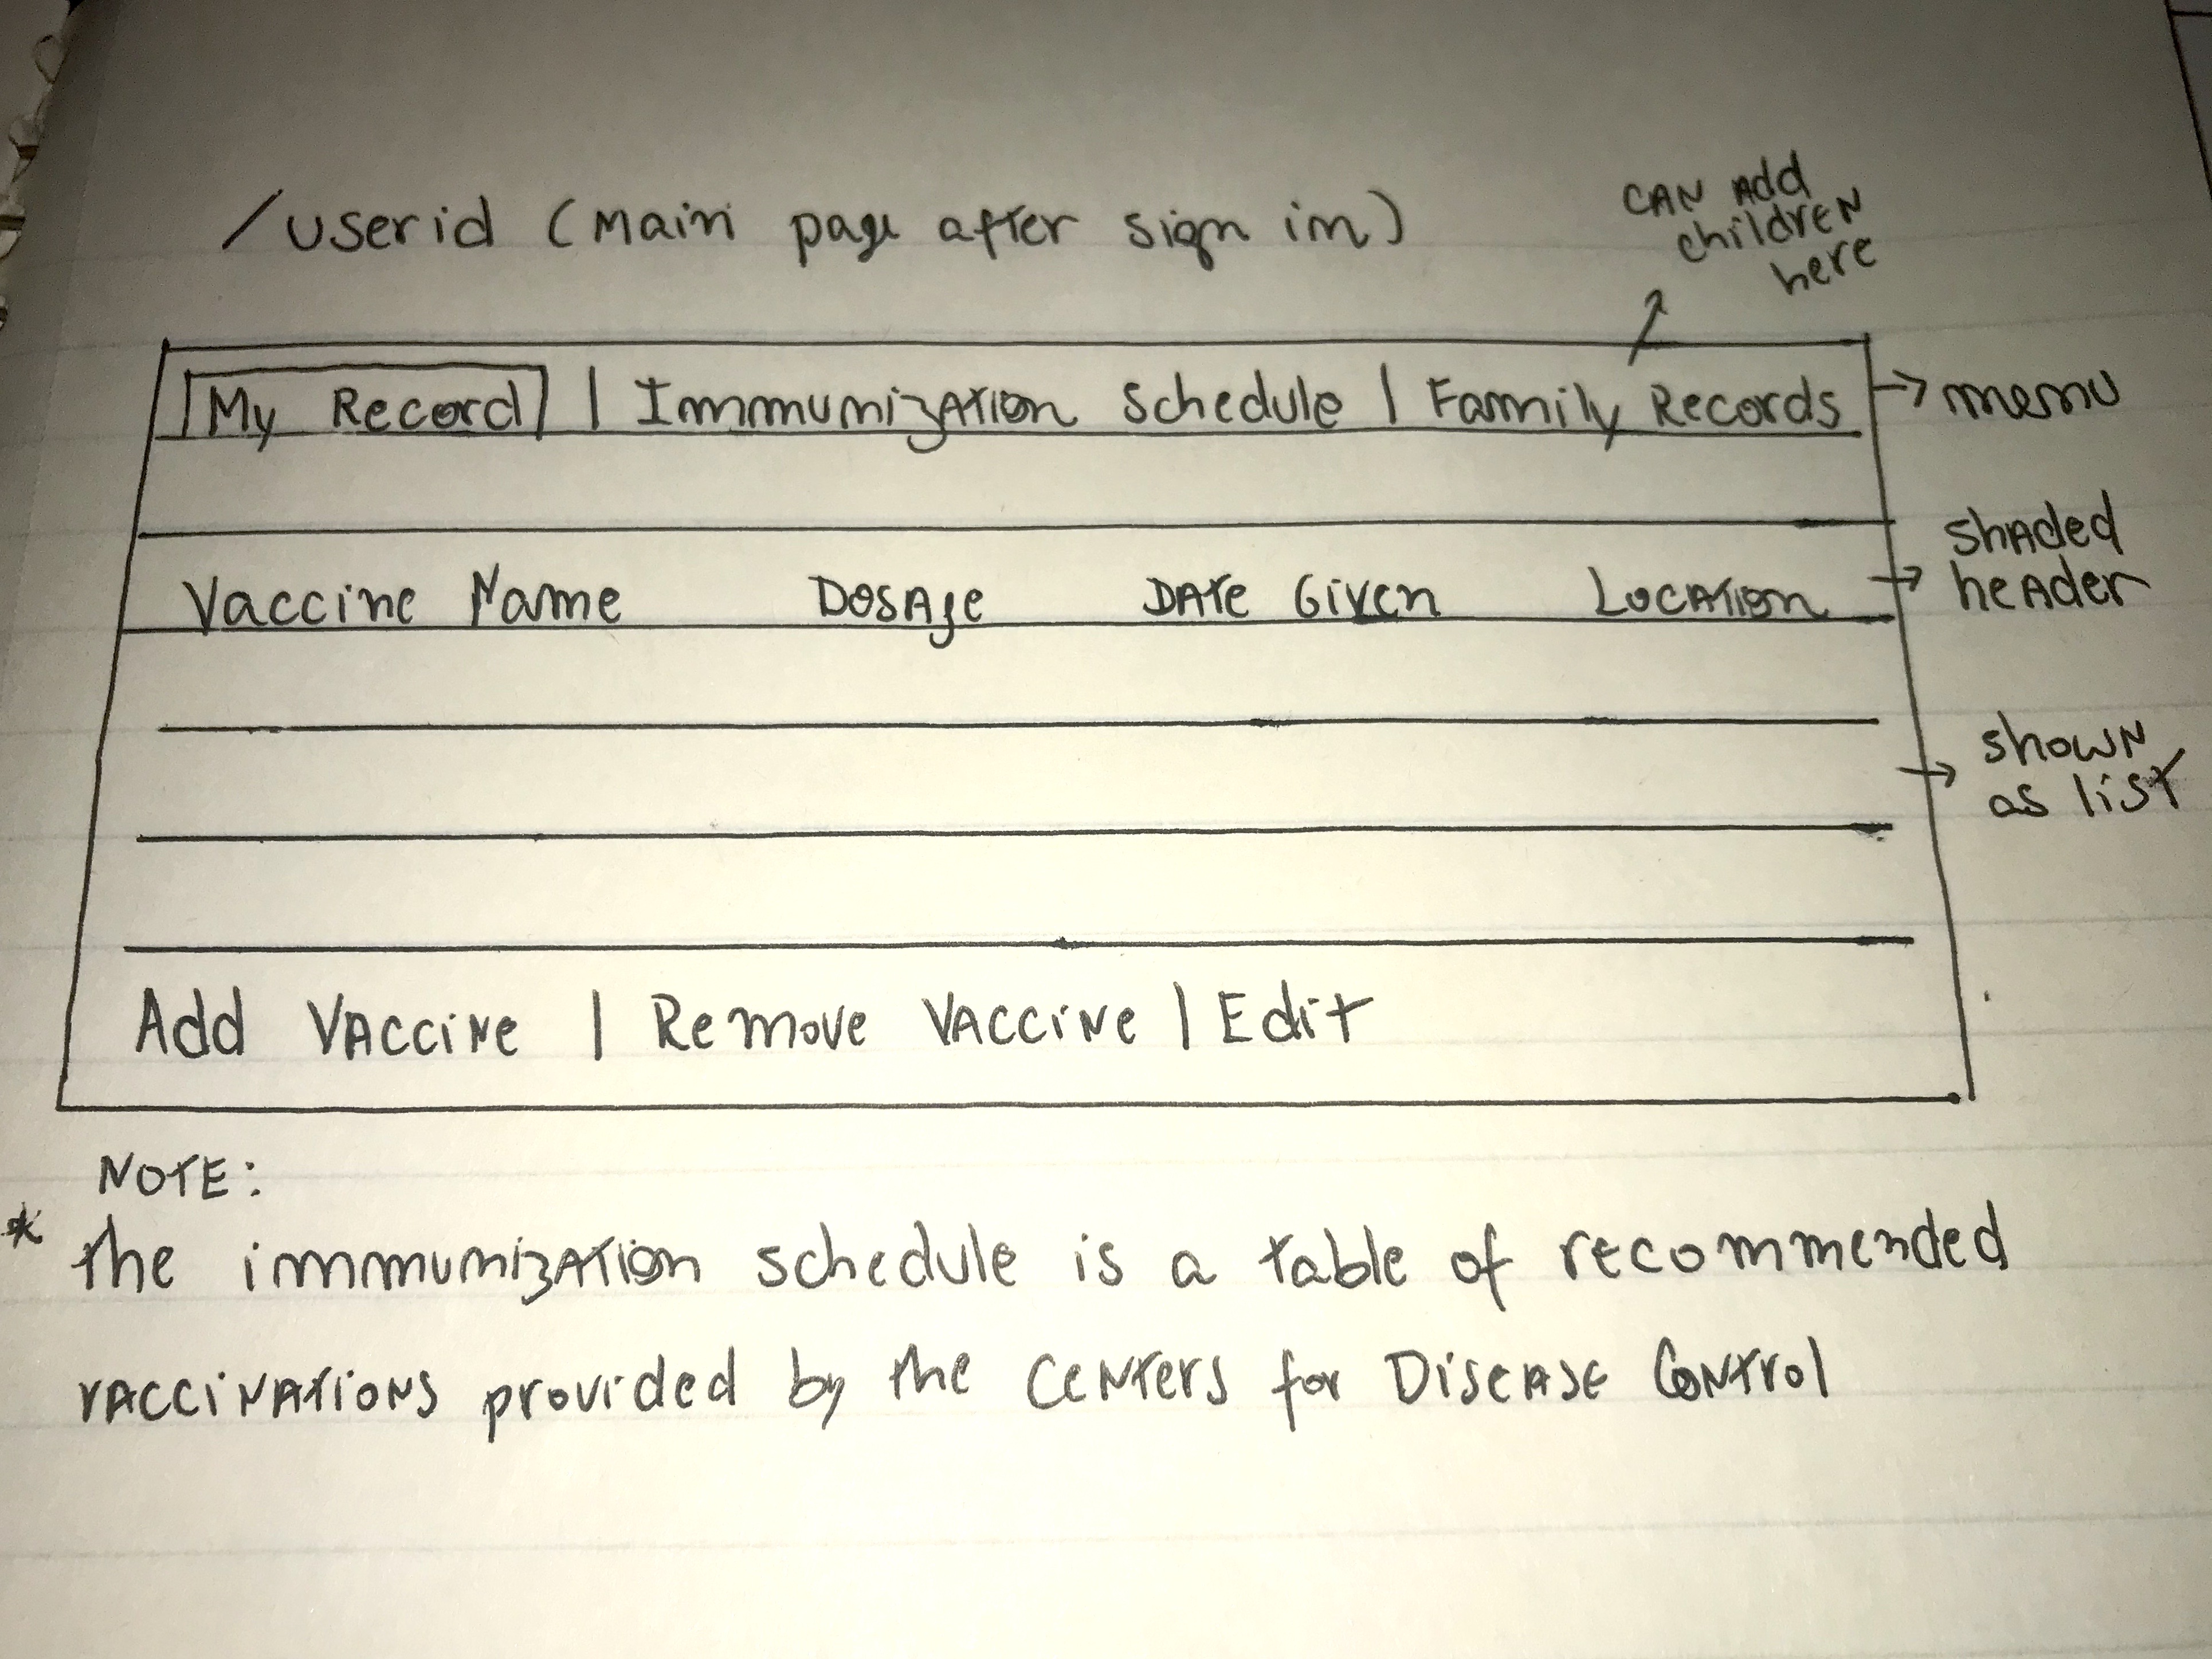 /userid (Main page after sign in)
CAN Add
children
here
My Record | Immunization Schedule | Family Records
menu
Vaccine Name Dosage Date Given Location
shaded
header
shown
as list
Add Vaccine | Remove Vaccine | Edit
NOTE:
* the immunization schedule is a table of recommended
vaccinations provided by the Centers for Disease Control